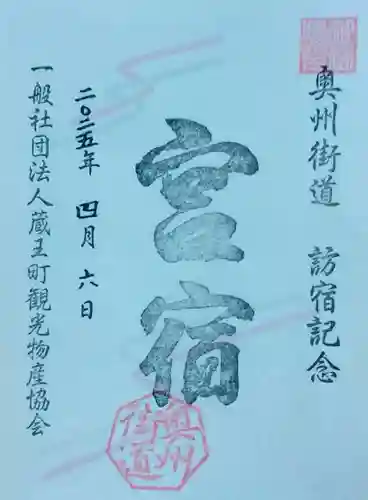 奥州街道 訪宿記念
宮宿
二〇二五年 四月 六日
一般社団法人蔵王町観光物産協会
奥州
街道